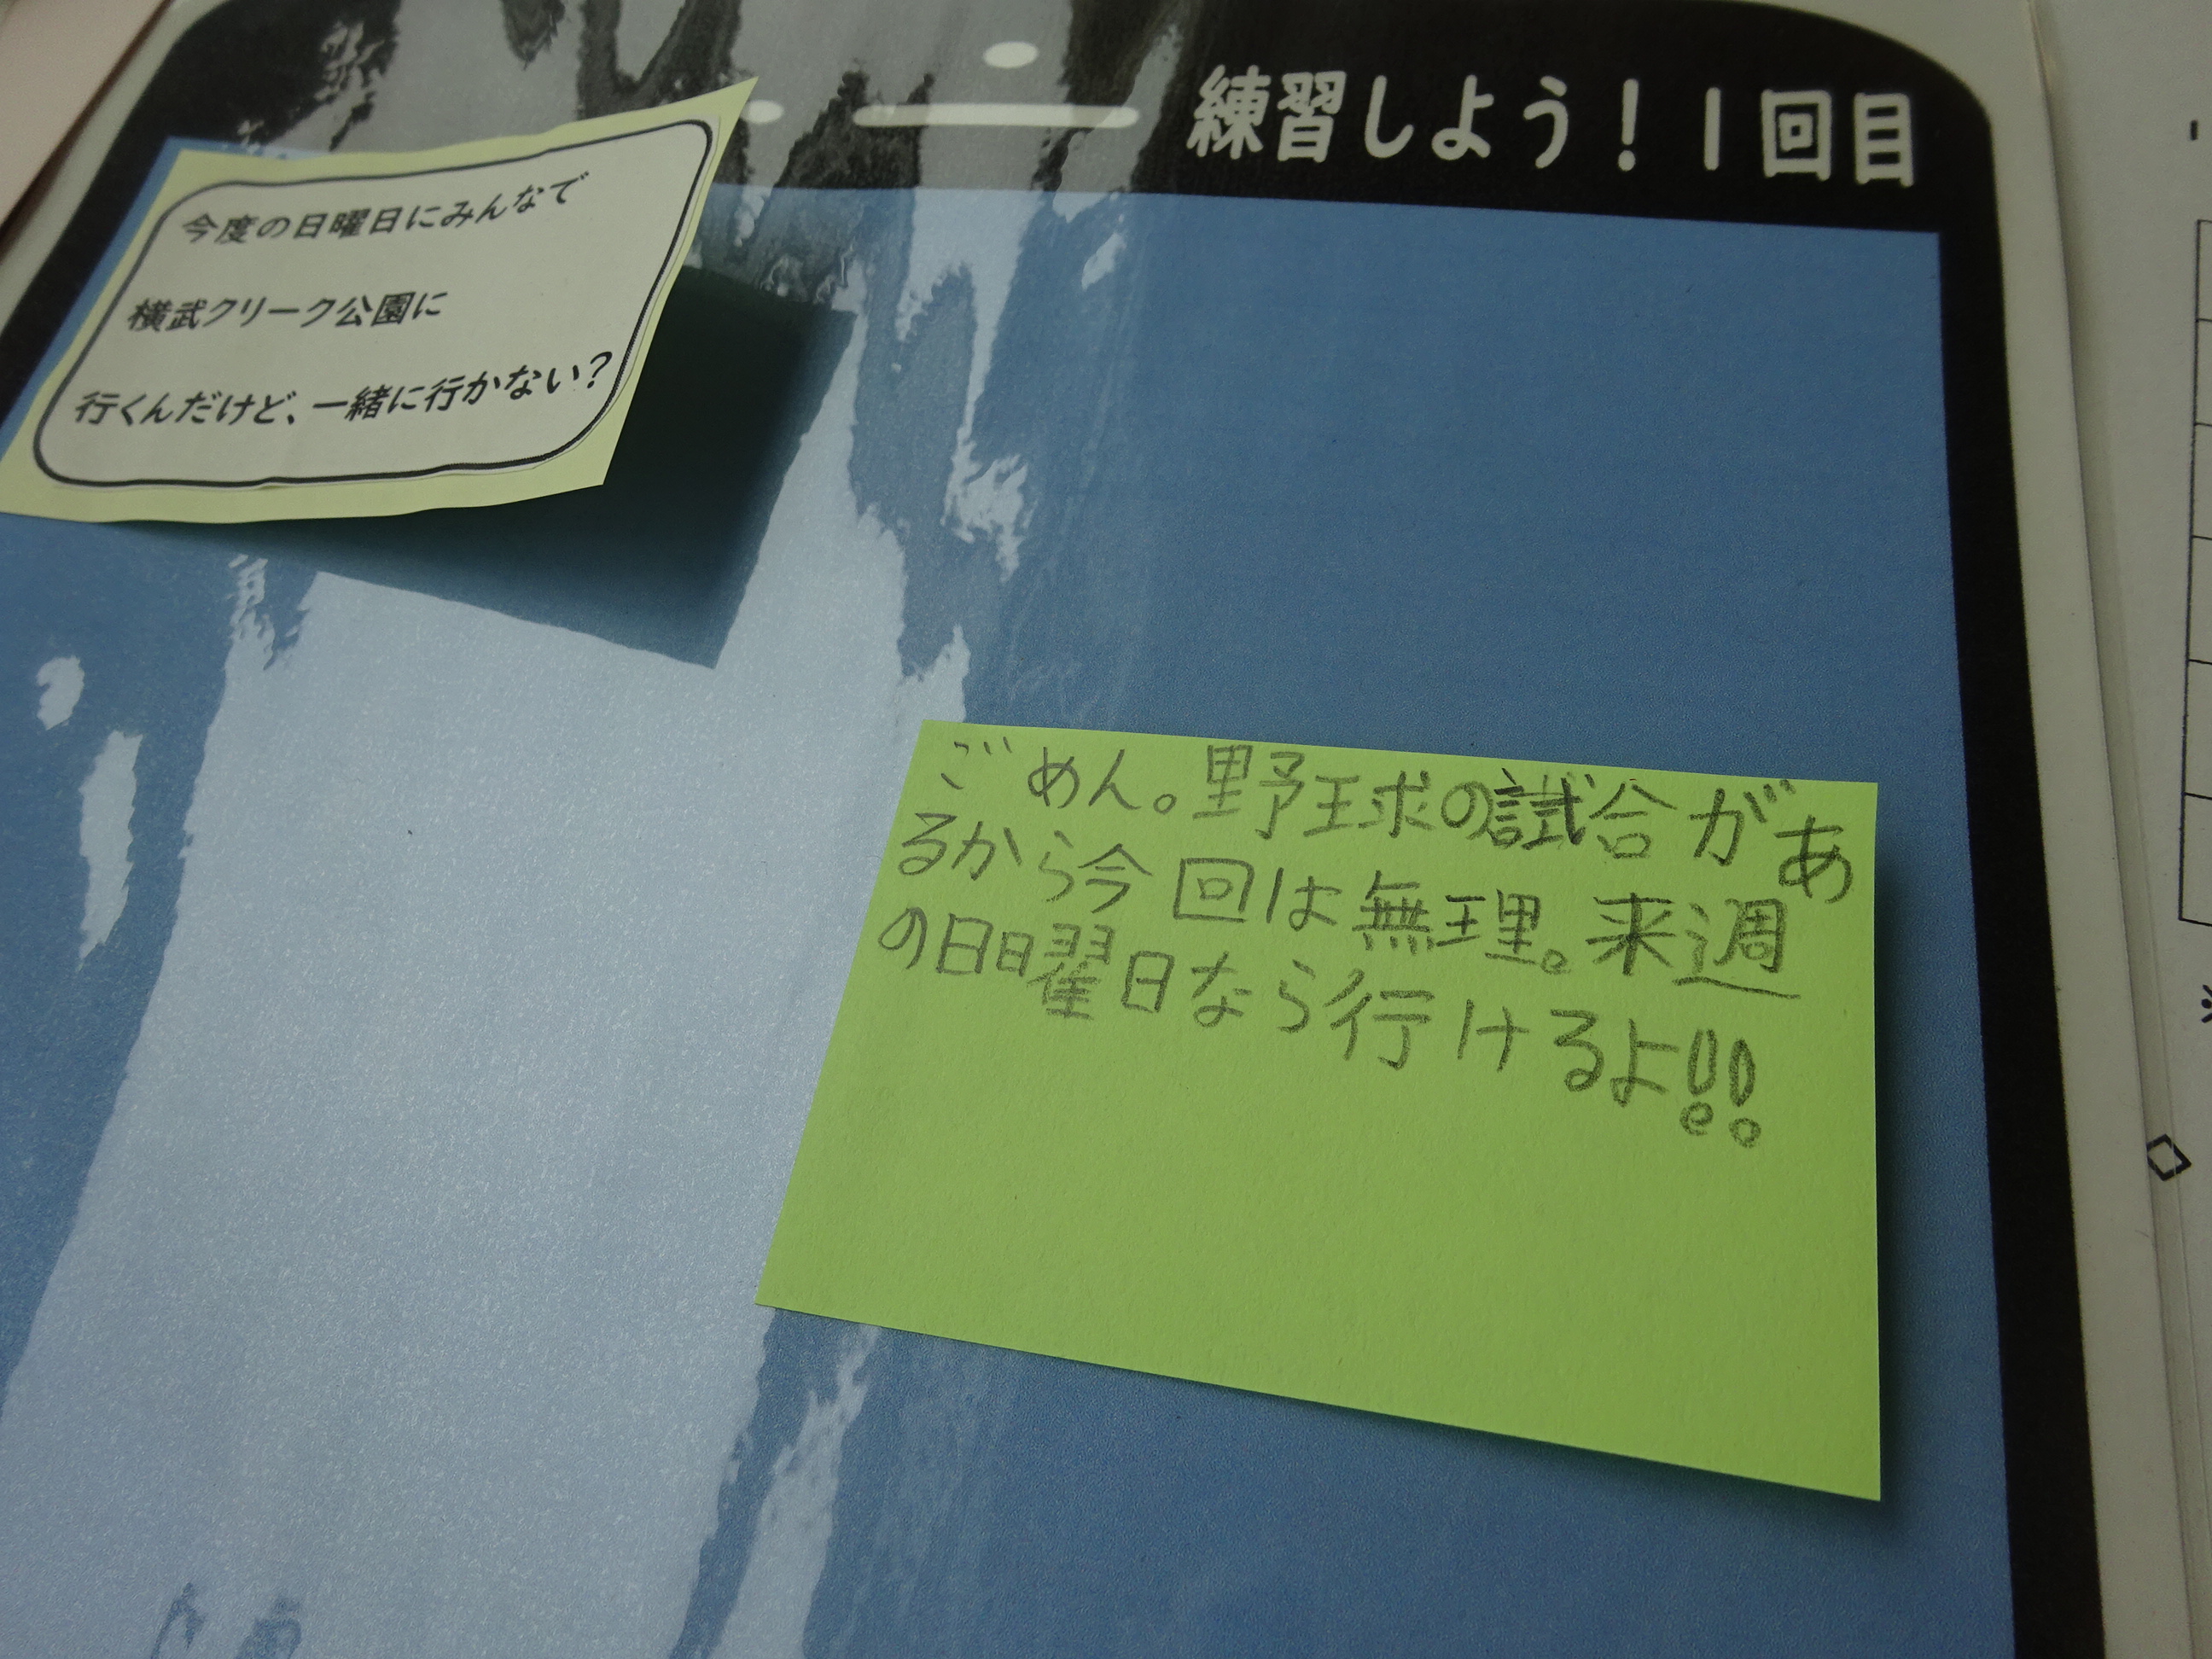 練習しよう！1回目
今度の日曜日にみんなで
横武クリーク公園に
行くんだけど、一緒に行かない？
ごめん。野球の試合があ
るから今回は無理。来週
の日曜日なら行けるよ!!